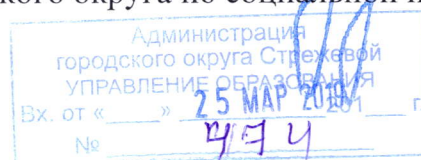 кого округа по социальной п
Администрация
городского округа Стрежевой
УПРАВЛЕНИЕ ОБРАЗОВАНИЯ
Вх. от «____» 25 МАР 2019 201___ г
№ 474